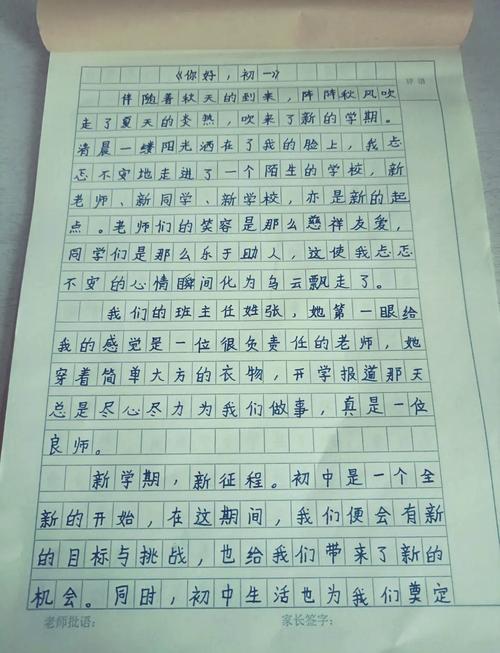 《你好，初一》
评语
伴随着秋天的到来，阵阵秋风吹
走了夏天的炎热，吹来了新的学期。
清晨一缕阳光洒在了我的脸上，我忐
忑不安地走进了一个陌生的学校，新
老师、新同学、新学校，亦是新的起
点。老师们的笑容是那么慈祥友爱，
同学们是那么乐于助人，这使我忐忑
不安的心情瞬间化为乌云飘走了。
我们的班主任姓张，她第一眼给
我的感觉是一位很负责任的老师，她
穿着简单大方的衣物，开学报道那天
总是尽心尽力为我们做事，真是一位
良师。
新学期，新征程。初中是一个全
新的开始，在这期间，我们便会有新
的目标与挑战，也给我们带来了新的
机会。同时，初中生活也为我们奠定
老师批语： 家长签字：